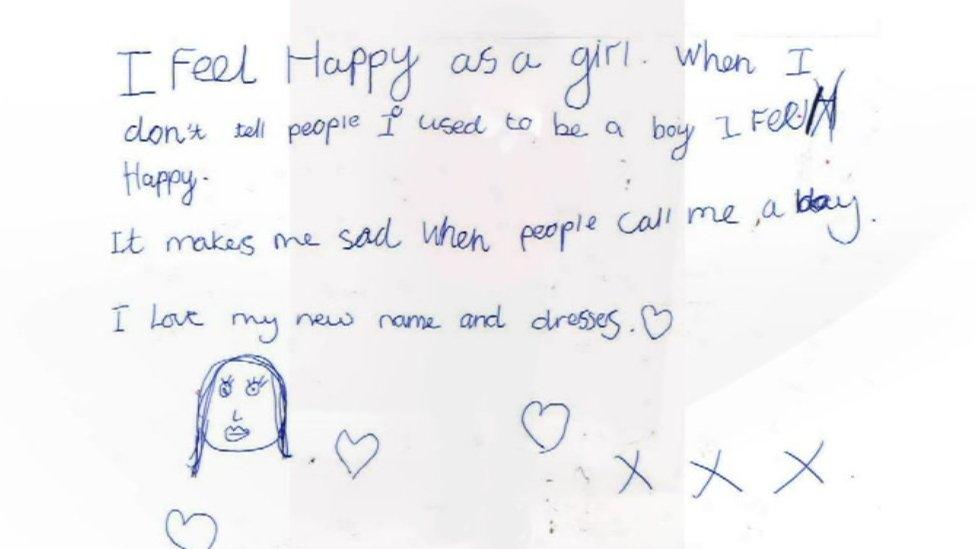 I Feel Happy as a girl. When I
don't tell people I used to be a boy I Feel
Happy.
It makes me sad when people call me a boy.
I Love my new name and dresses.
X X X